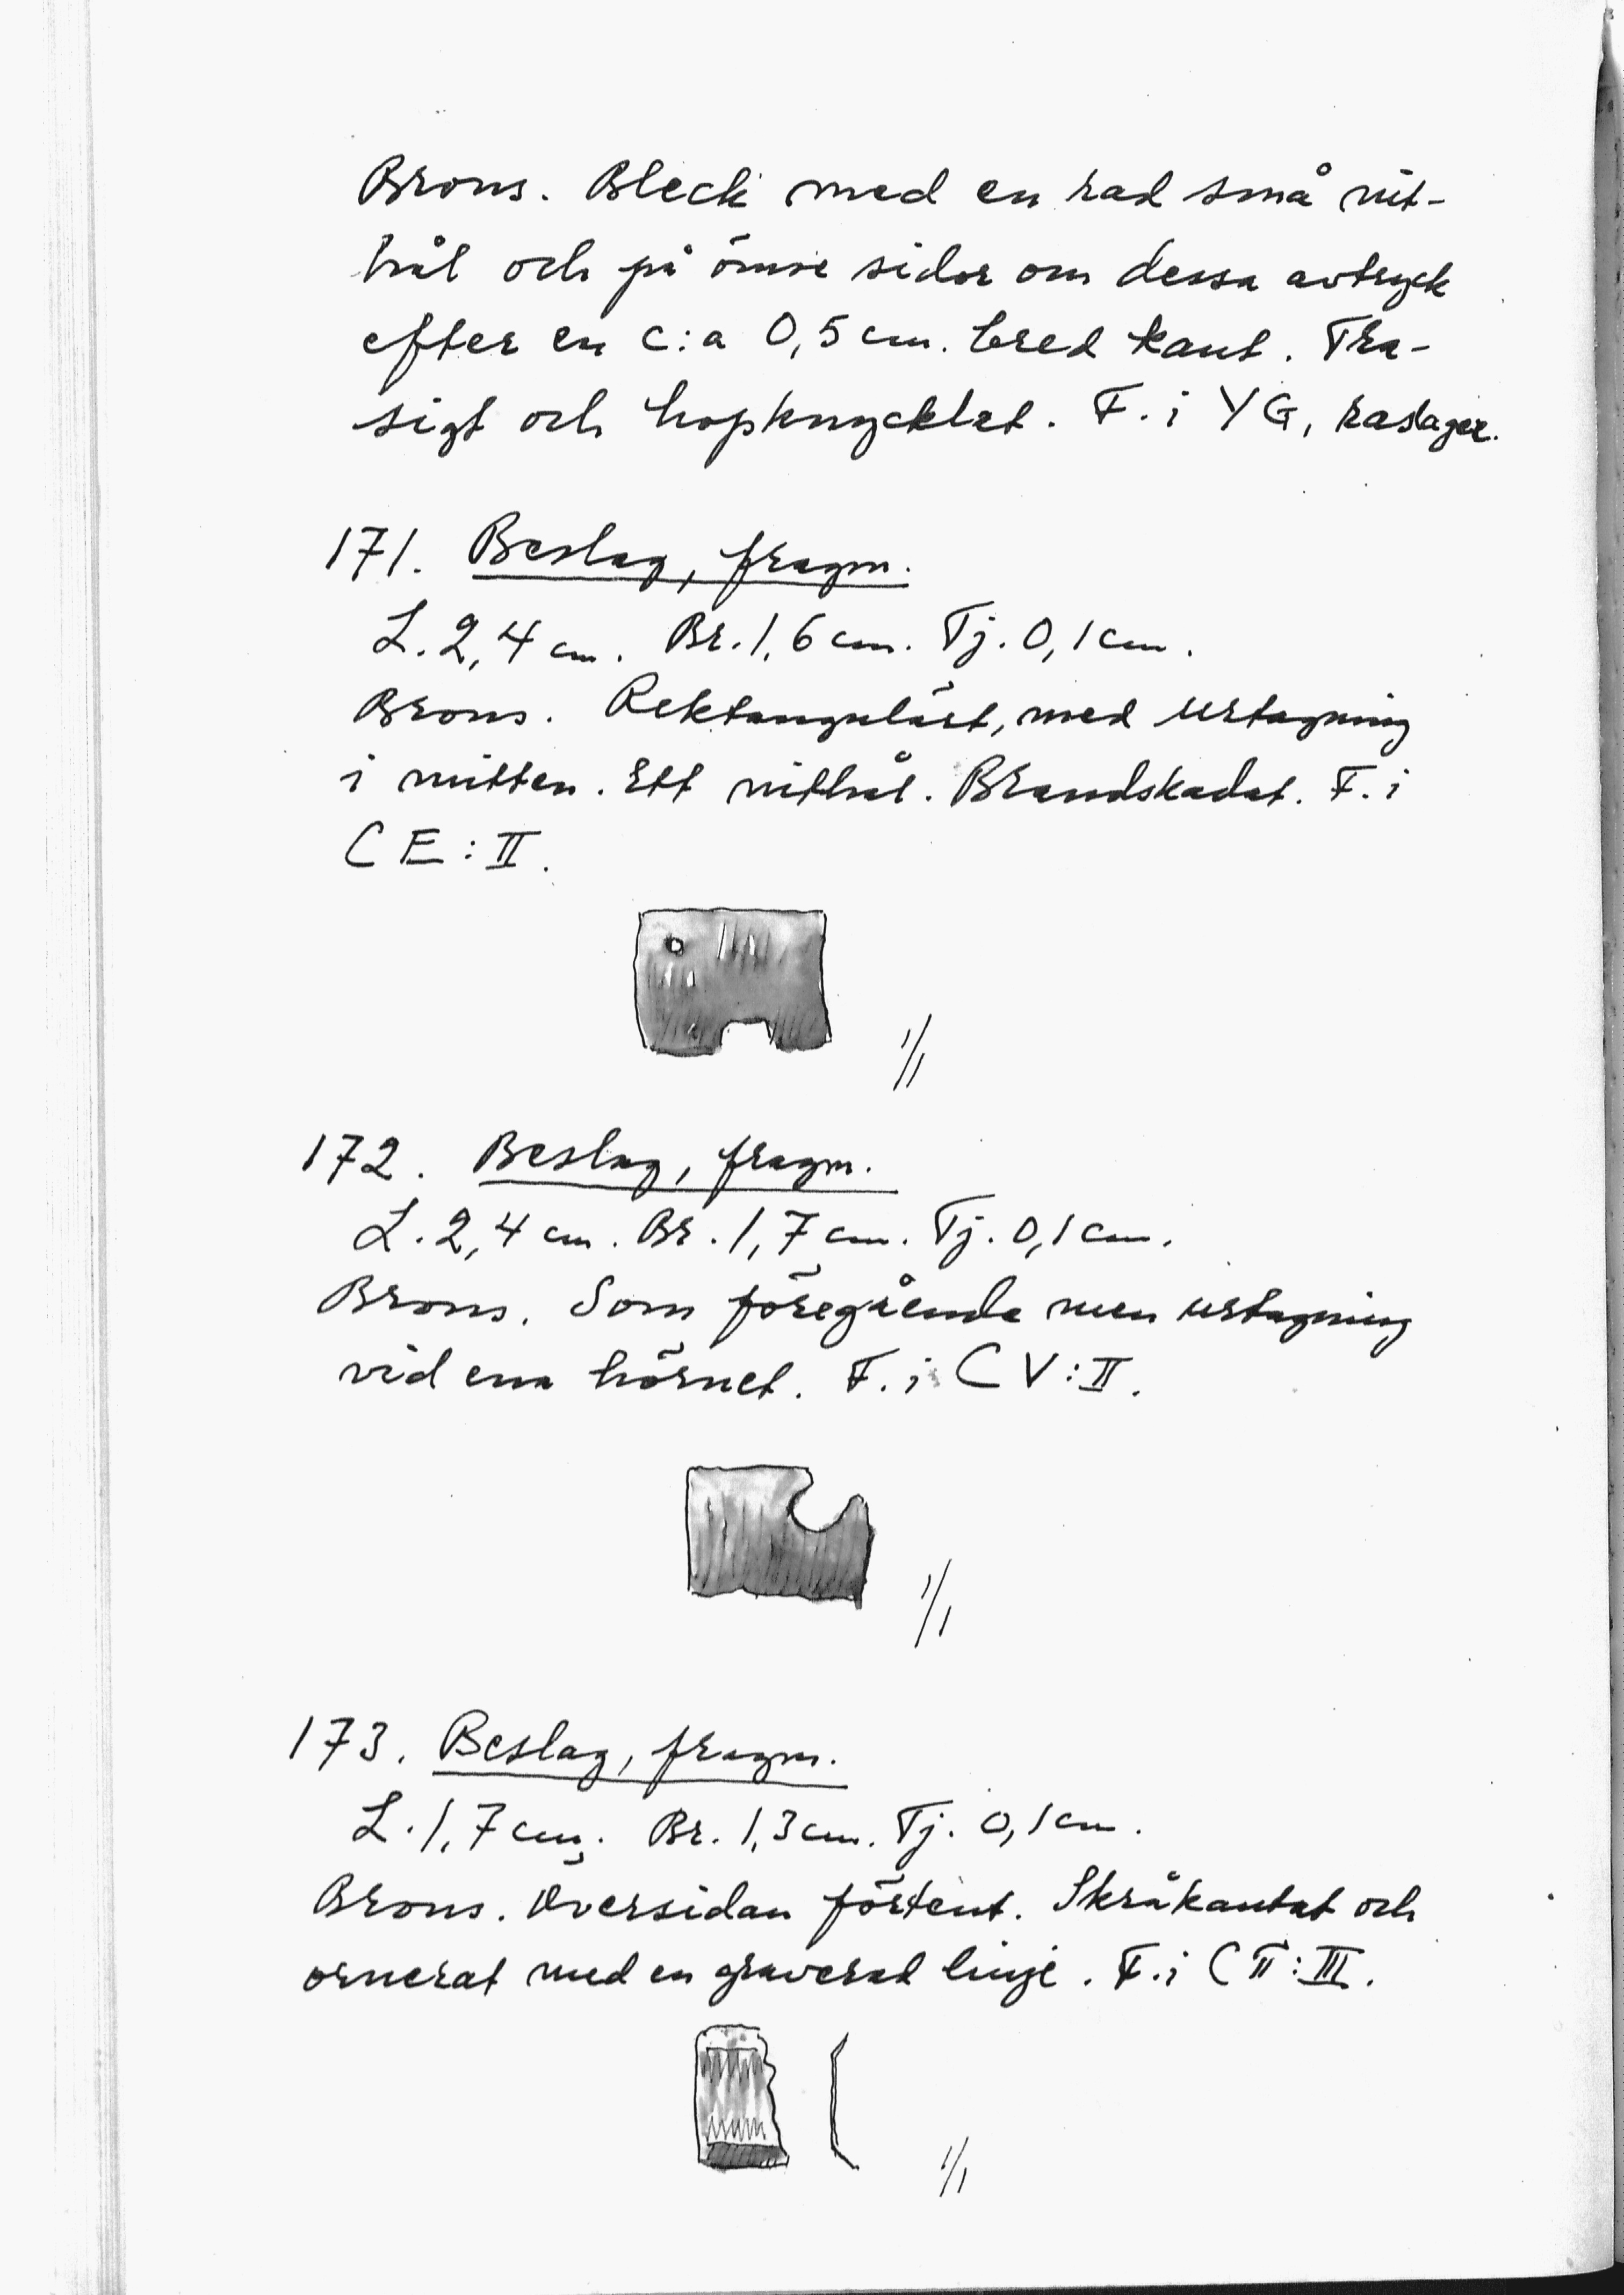 Brons. Bleck med en rad små nit-
hål och på ömse sidor om dessa avtryck
efter en c:a 0,5 cm. bred kant. Tra-
sigt och hopknycklat. F. i YG, raslager.
171. Beslag, fragm.
L. 2,4 cm. Br. 1,6 cm. Tj. 0,1 cm.
Brons. Rektangulärt, med urtagning
i mitten. Ett nithål. Brandskadat. F. i
CE:II.
1/1
172. Beslag, fragm.
L. 2,4 cm. Br. 1,7 cm. Tj. 0,1 cm.
Brons. Som föregående men urtagning
vid ena hörnet. F. i CV:II.
1/1
173. Beslag, fragm.
L. 1,7 cm. Br. 1,3 cm. Tj. 0,1 cm.
Brons. Översidan förtent. Skråkantat och
ornerat med en graverad linje. F. i CT:III.
1/1